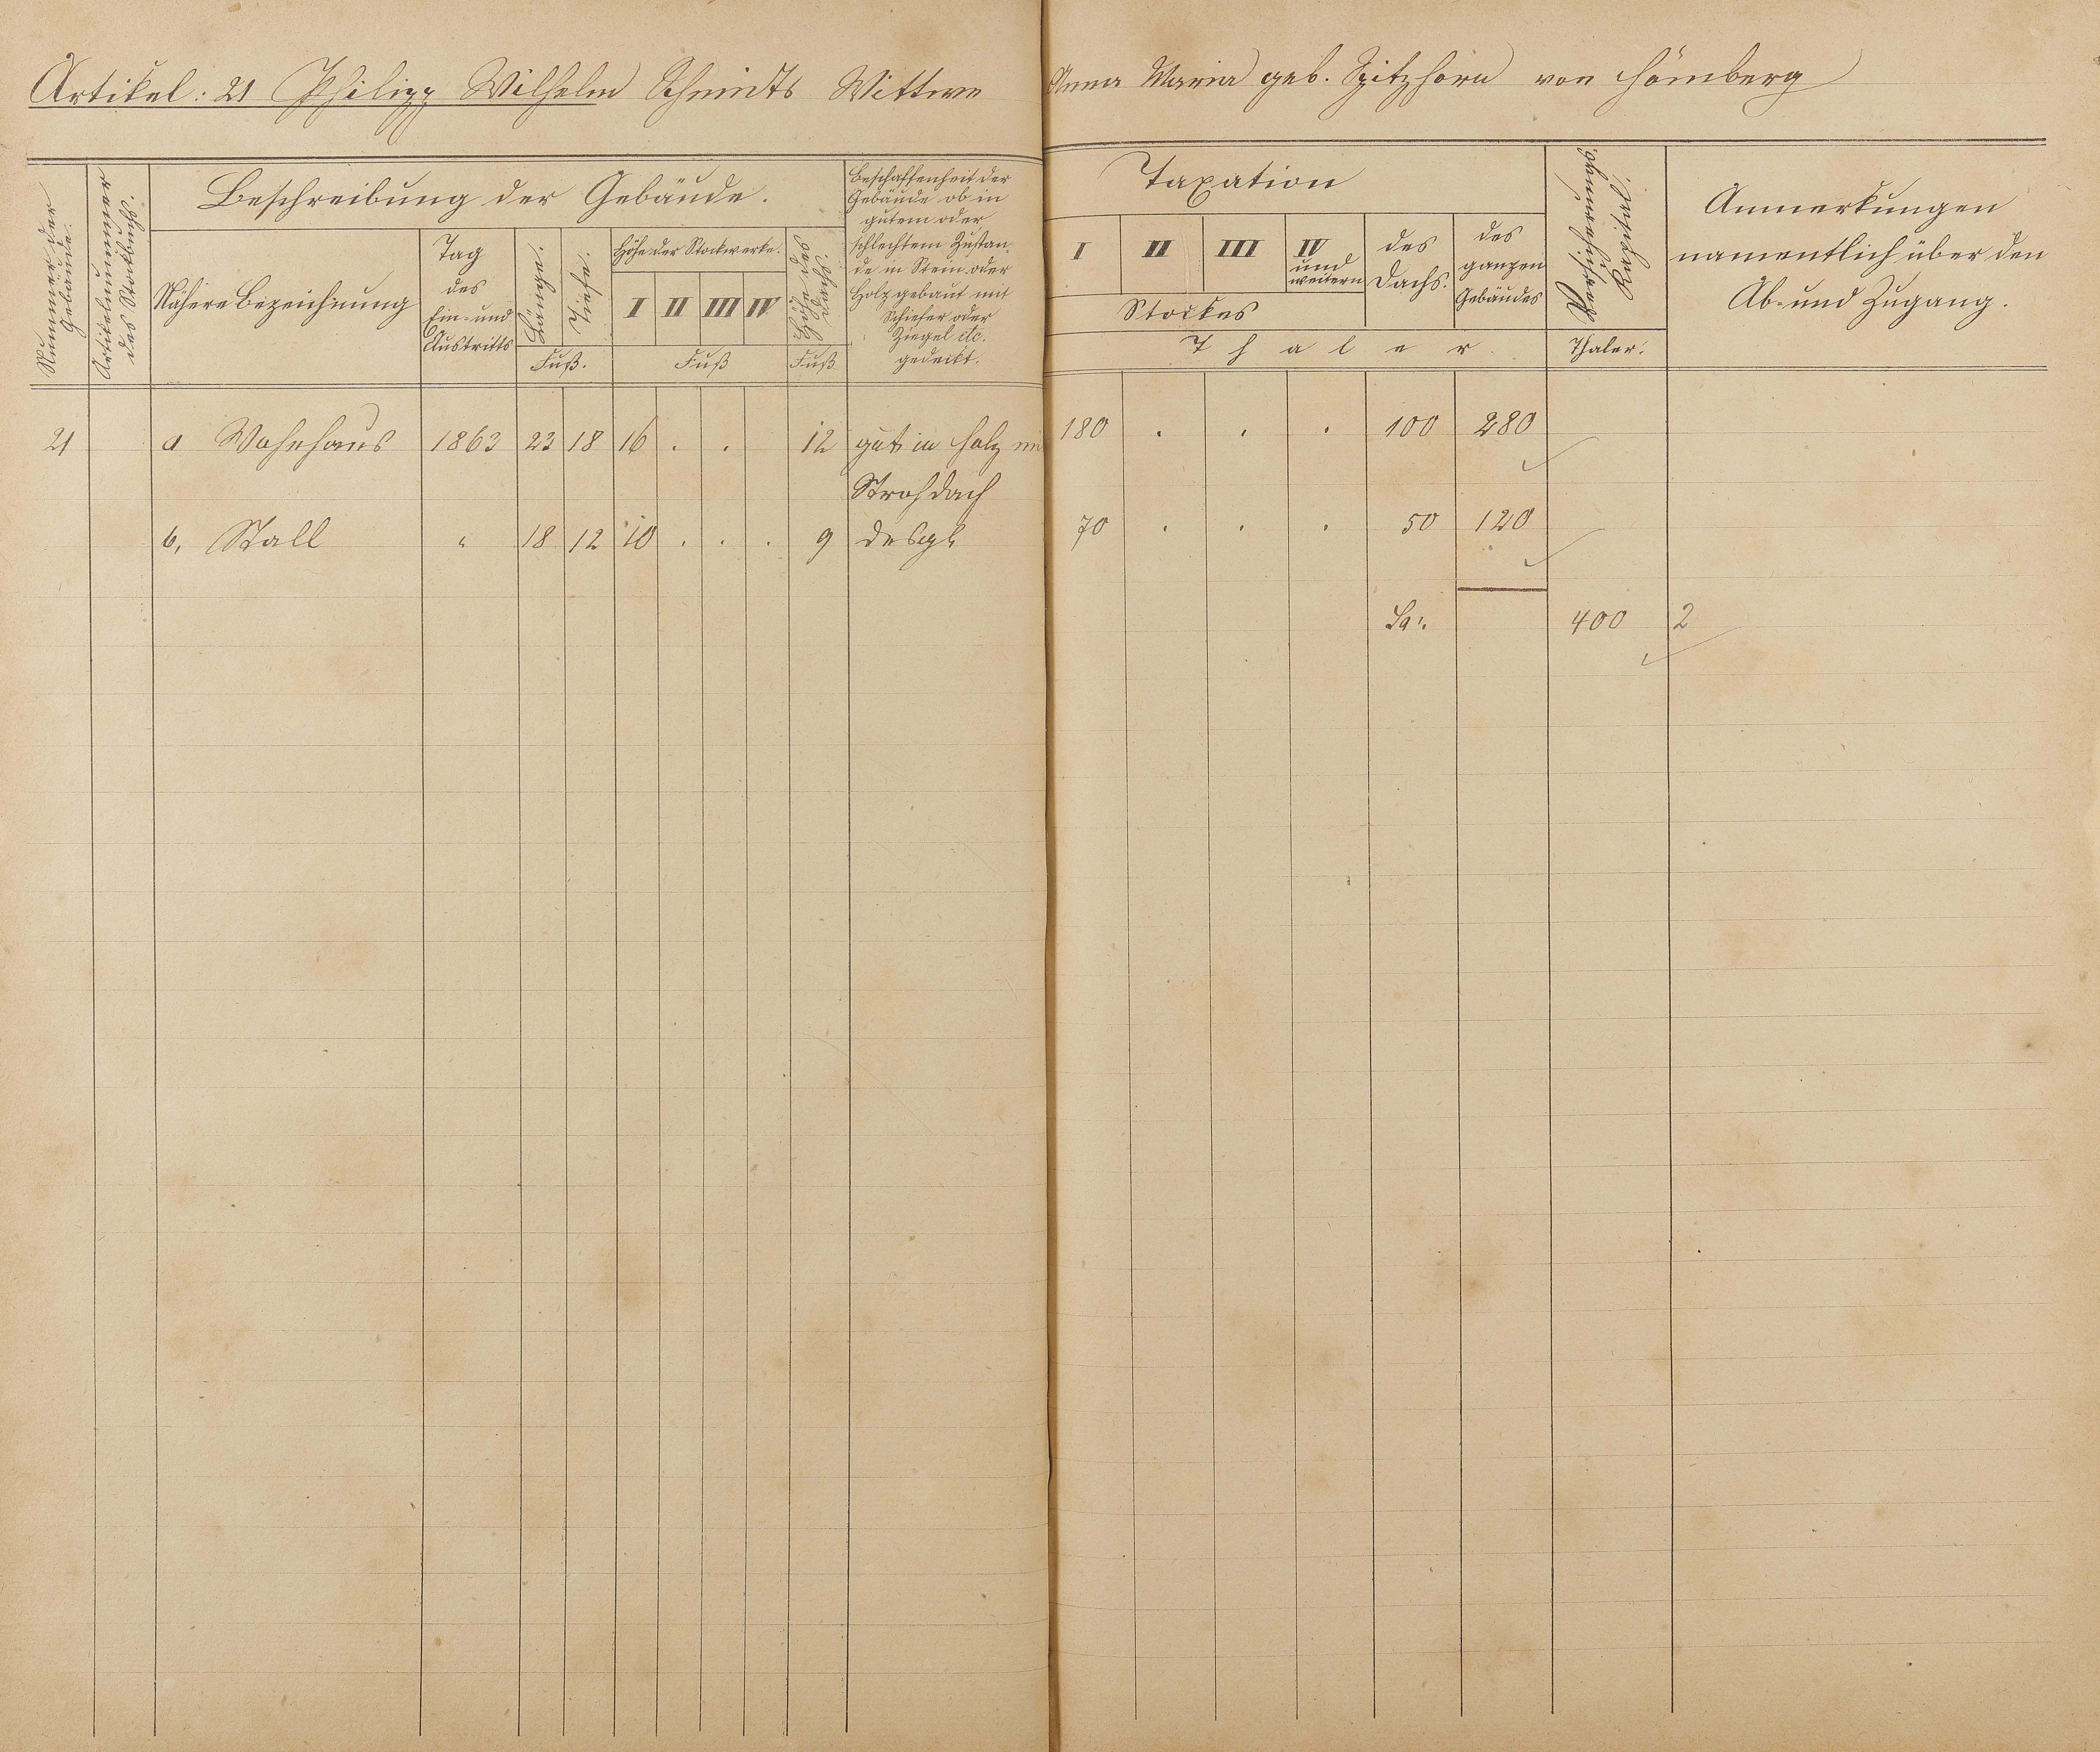 Artikel: 21 Philipp Wilhelm Schmidts Wittwe Anna Maria geb. Spitzhorn von Hömberg
Nummer der Gebäude.
Artikelnummer des Stockbuchs.
Beschreibung der Gebäude.
Nähere Bezeichnung
Tag des Ein- und Austritts
Länge.
Tiefe.
Fuß.
Höhe der Stockwerke.
I II III IV
Fuß
Höhe des Dachs.
Fuß
Beschaffenheit der
Gebäude ob in
gutem oder
schlechtem Zustan-
de in Stein oder
Holz gebaut mit
Schiefer oder
Ziegel etc.
gedeckt.
Taxation
I II III IV und weitern
Stockes
des Dachs.
des ganzen Gebäudes
Thaler
Versicherungs
Thaler.
Anmerkungen
namentlich über den
Ab- und Zugang.
21 a Wohnhaus 1863 23 18 16 . . 12 gut in Holz mi 180 . . . 100 280
Strohdach
b, Stall " 18 12 10 . . . 9 desgl 70 . . . 50 120
Sa. 400 2